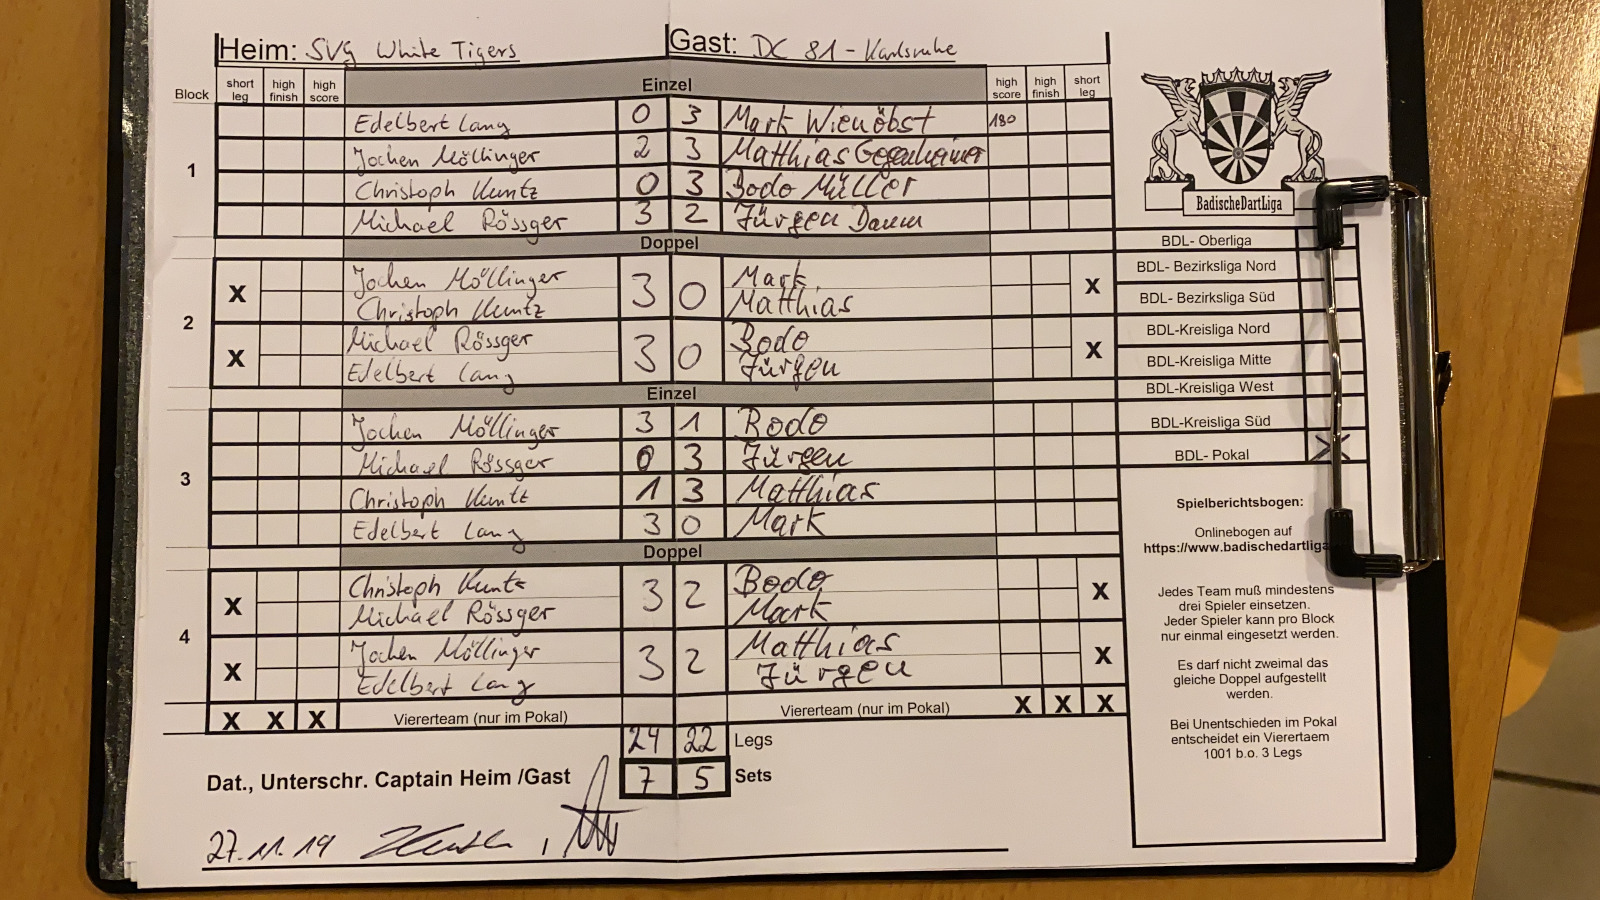 Heim: SVG White Tigers Gast: DC 81 - Karlsruhe
Block short leg high finish high score Einzel high score high finish short leg
1
Edelbert Lang 0 3 Mark Wienöbst 180
Jochen Möllinger 2 3 Matthias Gegenheimer
Christoph Kuntz 0 3 Bodo Müller
Michael Rössger 3 2 Jürgen Daum
Doppel
2
X Jochen Möllinger 3 0 Mark X
Christoph Kuntz Matthias
X Michael Rössger 3 0 Bodo X
Edelbert Lang Jürgen
Einzel
3
Jochen Möllinger 3 1 Bodo
Michael Rössger 0 3 Jürgen
Christoph Kuntz 1 3 Matthias
Edelbert Lang 3 0 Mark
Doppel
4
X Christoph Kuntz 3 2 Bodo X
Michael Rössger Mark
X Jochen Möllinger 3 2 Matthias X
Edelbert Lang Jürgen
X X X Viererteam (nur im Pokal) Viererteam (nur im Pokal) X X X
24 22 Legs
Dat., Unterschr. Captain Heim /Gast 7 5 Sets
27.11.19
BadischeDartLiga
BDL- Oberliga
BDL- Bezirksliga Nord
BDL- Bezirksliga Süd
BDL-Kreisliga Nord
BDL-Kreisliga Mitte
BDL-Kreisliga West
BDL-Kreisliga Süd
BDL- Pokal X
Spielberichtsbogen:
Onlinebogen auf
https://www.badischedartliga
Jedes Team muß mindestens
drei Spieler einsetzen.
Jeder Spieler kann pro Block
nur einmal eingesetzt werden.
Es darf nicht zweimal das
gleiche Doppel aufgestellt
werden.
Bei Unentschieden im Pokal
entscheidet ein Vierertaem
1001 b.o. 3 Legs